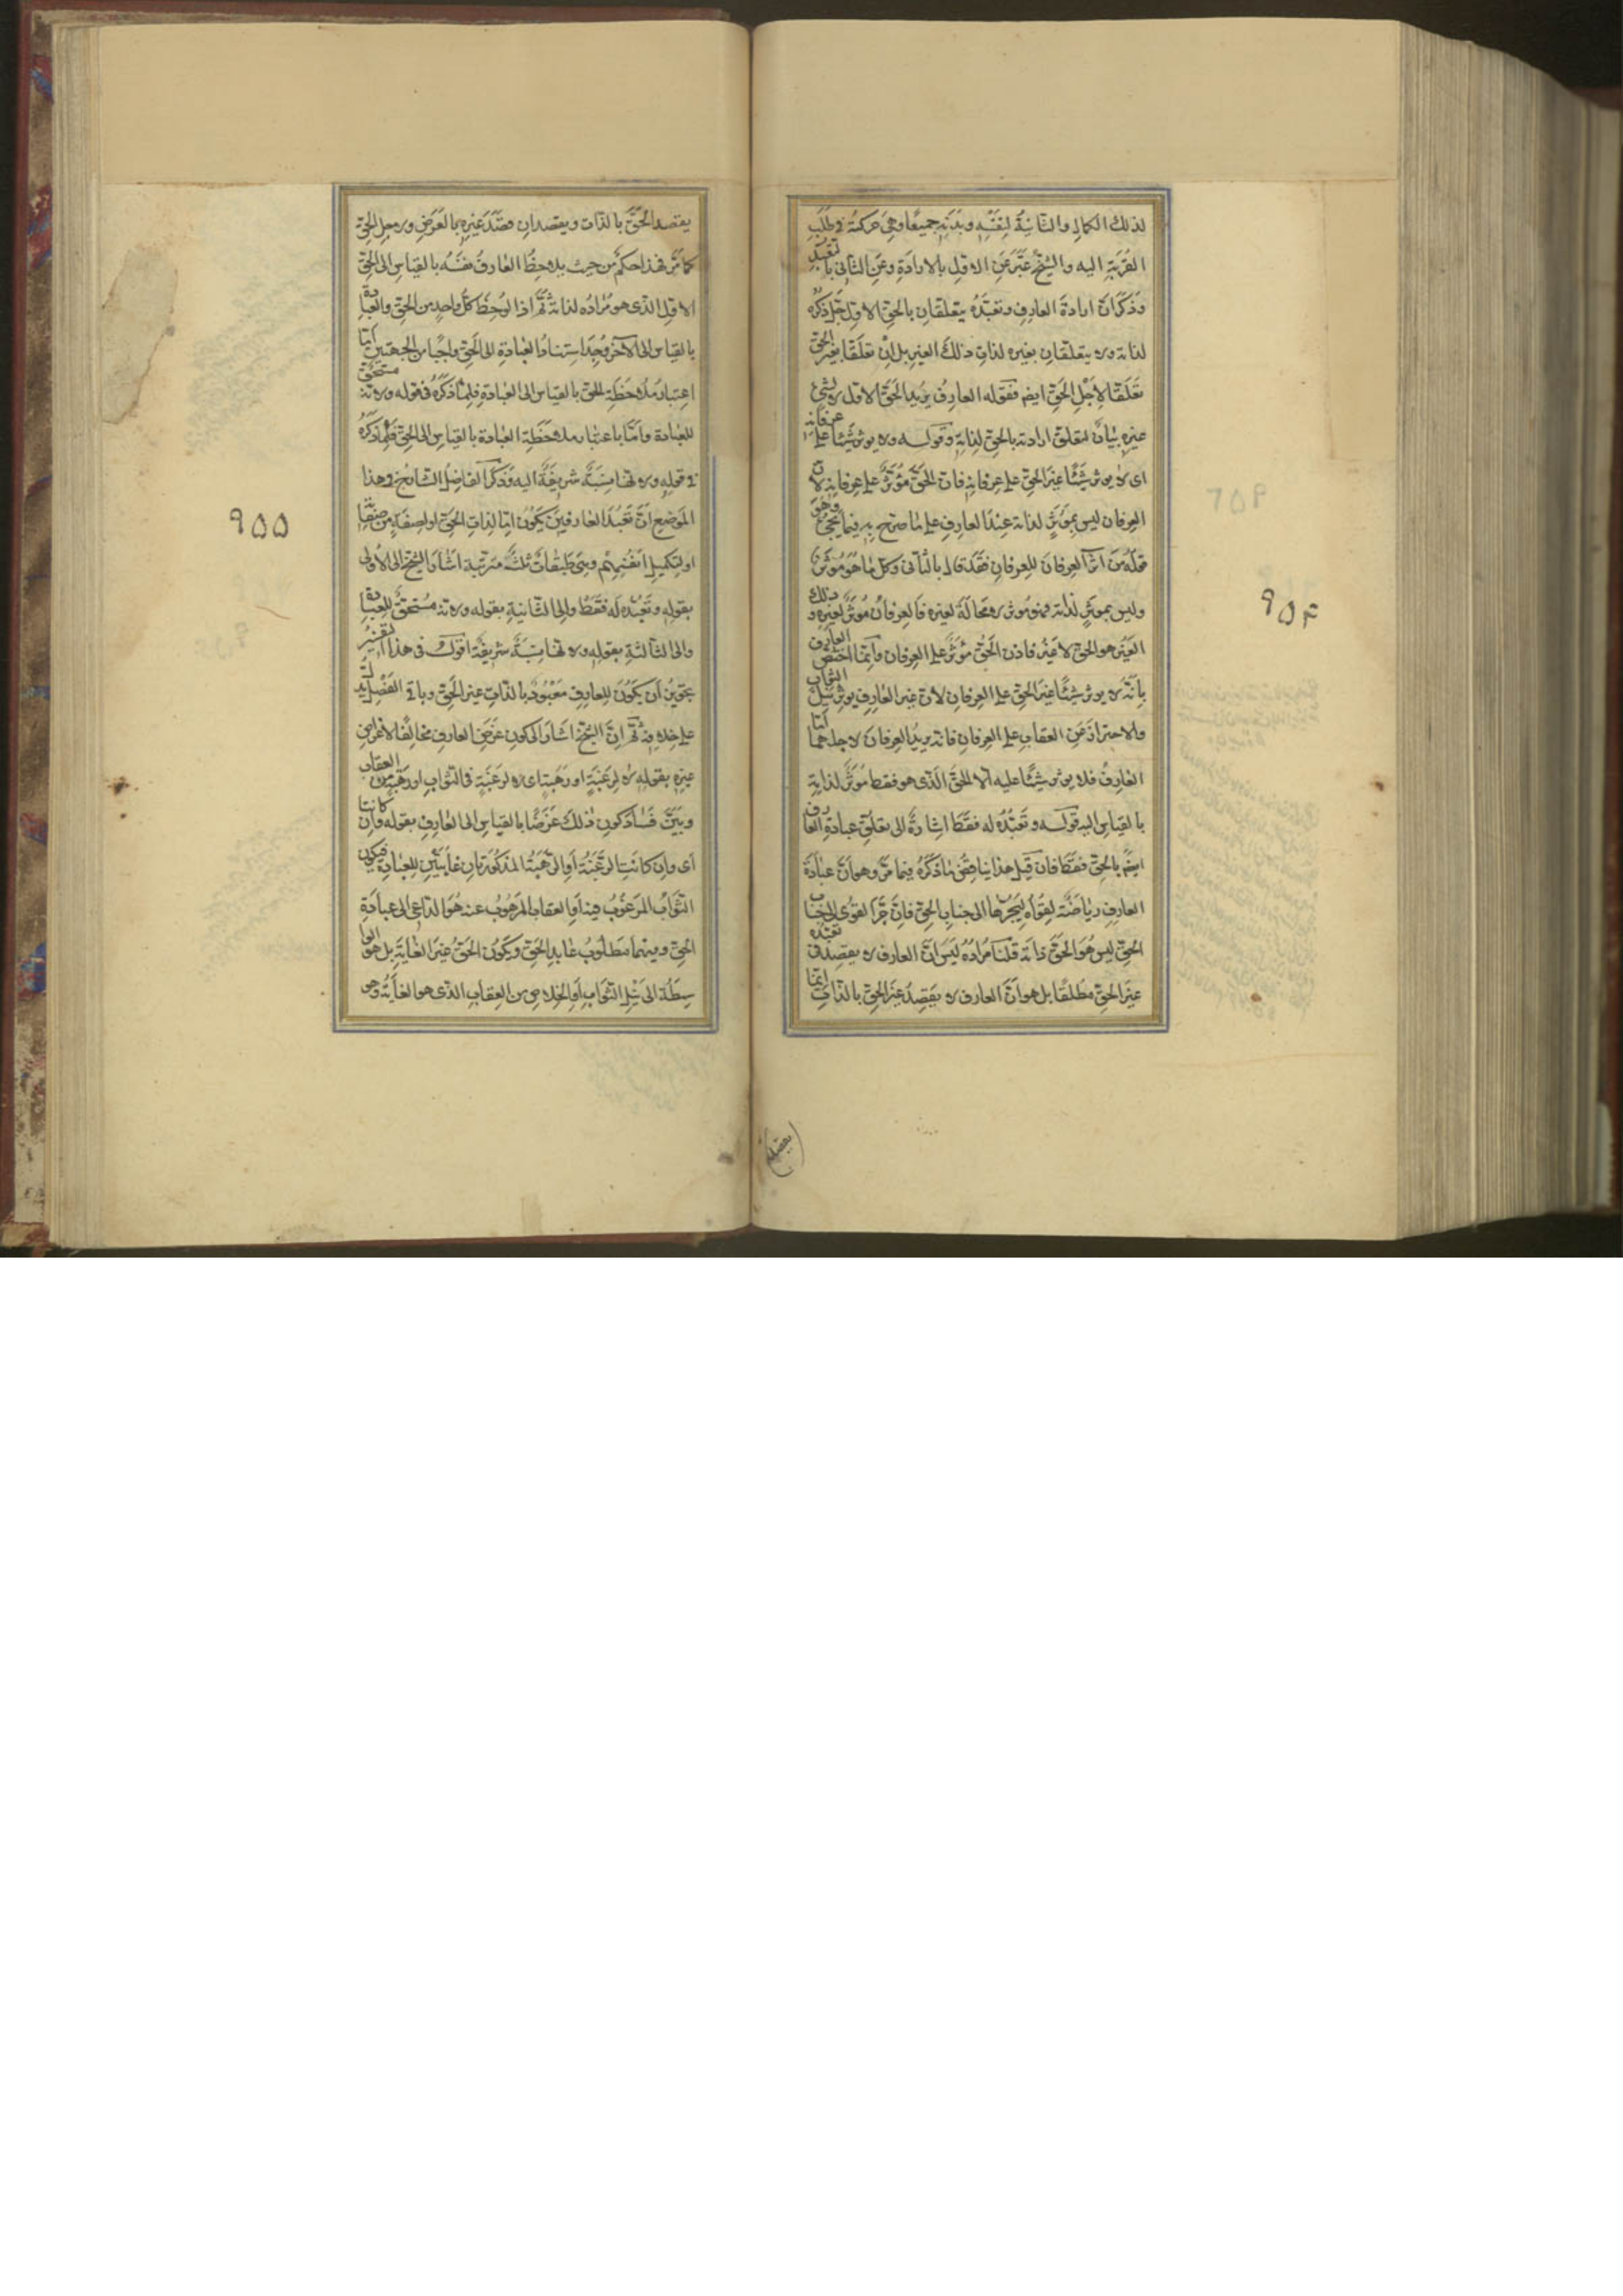 لذلك الكمال والثانية لنفسه وبدنه جميعا وهي حركته في طلب
القربة اليه والشيخ عبّر عن الاول بالارادة وعن الثاني بالتعبّد
وذكر ان ارادة العارف وتعبّده يتعلقان بالحق الاول جل ذكره
لذاته ولا يتعلقان بغيره لذات ذلك الغير بل ان تعلّقا بغير الحق
تعلّقا لاجل الحق ايضا فقوله العارف يريد الحق الاول لا لشئ
غيره بيان لتعلق ارادته بالحق لذاته وقوله ولا يوثر شيئا على عرفانه
اى لا يوثر شيئا غير الحق على عرفانه فان الحق مؤثر على عرفانه لان
العرفان ليس بمؤثر لذاته عند العارف على ما صرح به فيما يجئ وهو
قوله من آثر العرفان للعرفان فقد قال بالثاني وكل ما هو مؤثر
وليس بمؤثر لذاته فهو مؤثر لا محالة لغيره فالعرفان مؤثر لغيره وذلك
الغير هو الحق لا غير فاذن الحق مؤثر على العرفان وانما اختص العارف
بانه لا يوثر شيئا غير الحق على العرفان لان غير العارف يوثر نيل الثواب
والاحتراز عن العقاب على العرفان فانه يريد العرفان لاجلهما اما
العارف فلا يوثر شيئا عليه الا الحق الذى هو فقط مؤثر لذاته
بالقياس اليه قوله وتعبّده له فقط اشارة الى تعلق عبادة العارف
ايضا بالحق فقط فان قيل هذا يناقض ما ذكره فيما مرّ وهو ان عبادة
العارف رياضة لقواه ليجرها الى جناب الحق فان جرّ القوى الى جناب
الحق ليس هو الحق ذاته قلنا مراده ليس ان العارف لا يقصد فى تعبّده
غير الحق مطلقا بل هو ان العارف لا يقصد غير الحق بالذات انما
٩٥٤
يقصد الحق بالذات ويقصد ان قصد غيره بالعرض ولاجل الحق
كما مرّ فهذا حكم من حيث يلاحظ العارف نفسه بالقياس الى الحق
الاول الذى هو مراده لذاته ثم اذا لوحظ كل واحد من الحق والعبادة
بالقياس الى الآخر وجد استناد العبادة الى الحق واجبا من الجهتين اما
اعتبار ملاحظة الحق بالقياس الى العبادة فلما ذكره فى قوله ولانه مستحق
للعبادة واما باعتبار ملاحظة العبادة بالقياس الى الحق فلما ذكره
فى قوله ولانها نسبة شريفة اليه وذكر الفاضل الشارح فى هذا
الموضع ان تعبد العارفين يكون اما لذات الحق او لصفة من صفاته
او لتكميل انفسهم وهى طبقات ثلث مترتبة اشار الشيخ الى الاولى
بقوله وتعبّده له فقط والى الثانية بقوله ولانه مستحق للعبادة
والى الثالثة بقوله ولانها نسبة شريفة اقول فى هذا التفسير
تجويز ان يكون للعارف معبود بالذات غير الحق وباقى الفصل يدل
على خلافه ثم ان الشيخ اشار الى كون غرض العارف مخالفا لاغراض
غيره بقوله لا لرغبة او رهبة اى لا لرغبة فى الثواب او رهبة من العقاب
وبيّن فساد كون ذلك غرضا بالقياس الى العارف بقوله وان كانتا
اى وان كانت الرغبة او الرهبة المذكورتان غايتين للعبادة فيكون
الثواب المرغوب فيه او العقاب المرهوب عنه هو الداعى الى عبادة
الحق وفيهما مطلوب عابد الحق ويكون الحق غير الغاية بل هو الوا
سطة الى نيل الثواب او الخلاص من العقاب الذى هو الغاية وهو
٩٥٥